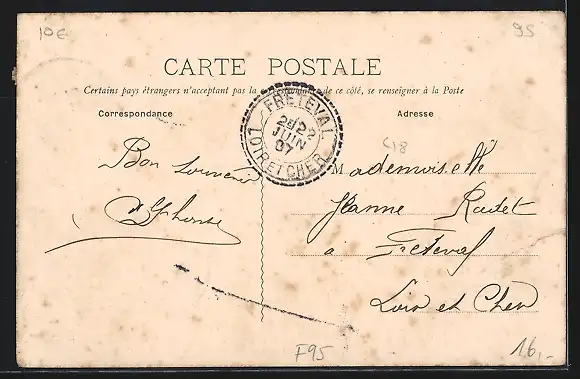 10€
95
CARTE POSTALE
Certains pays étrangers n'acceptant pas la correspondance de ce côté, se renseigner à la Poste
Correspondance
Adresse
FRETEVAL
22
JUIN
07
LOIR ET CHER
C18
Bon Souvenir
Mademoiselle
Jeanne Radet
à Freteval
Loir et Cher
F95
16,-